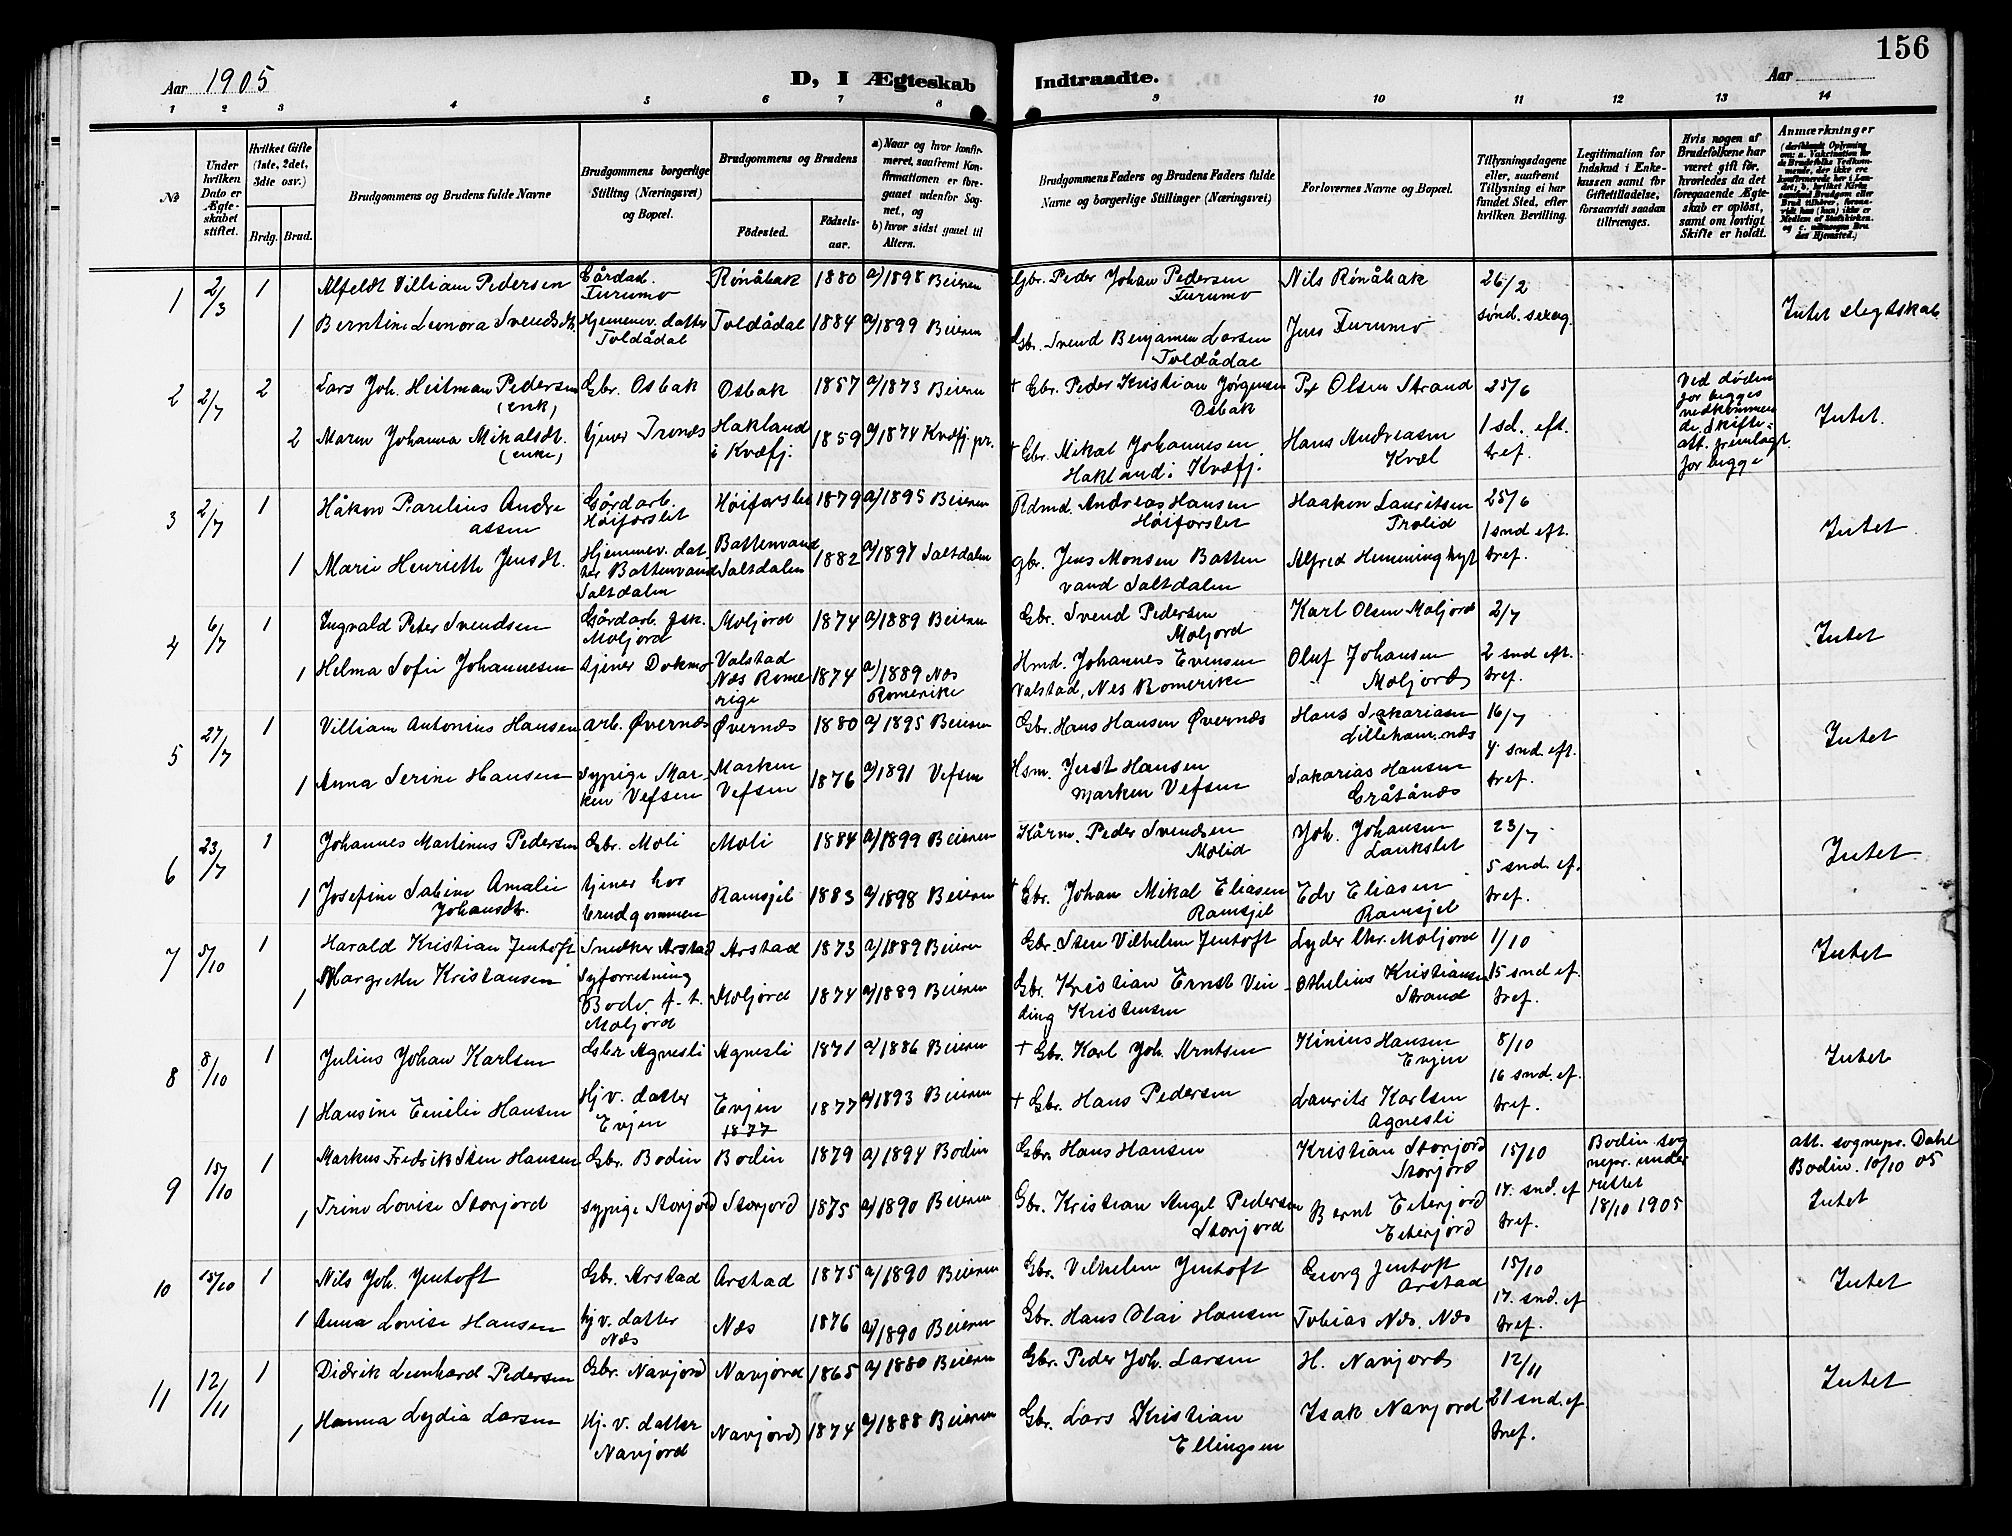 156
Aar 1905
D, I Ægteskab Indtraadte.
Aar
1 2 3 4 5 6 7 8 9 10 11 12 13 14
No
Under hvilken Dato er Ægteskabet stiftet.
Hvilket Gifte (1ste, 2det, 3die osv.)
Brdg. Brud.
Brudgommens og Brudens fulde Navne
Brudgommens borgerlige Stilling (Næringsvei) og Bopæl.
Brudgommens og Brudens
Födested.
Födselsaar.
a) Naar og hvor konfirmeret, saafremt Konfirmationen er foregaaet udenfor Sognet, og
b) hvor sidst gaaet til Alters.
Brudgommens Faders og Brudens Faders fulde Navne og borgerlige Stillinger (Næringsvei)
Forlovernes Navne og Bopæl.
Tillysningsdagene eller, saafremt Tillysning ei har fundet Sted, efter hvilken Bevilling.
Legitimation for Indskud i Enkekassen samt for Giftetilladelse, forsaavidt saadan tiltrænges.
Hvis nogen af Brudefolkene har været gift för, hvorledes da det foregaaende Ægteskab er oplöst, samt om lovligt Skifte er holdt.
Anmærkninger
1 2/3 1 Alfeldt Villiam Pedersen Gårdad. Furumo Rönåbak 1880 a/1898 Beieren Gbr. Peder Johan Pedersen Furumo Nils Rönåbak 26/2
1 Berntine Leonora Svendsdt. Hjemmev. datter Toldådal Toldådal 1884 a/1899 Beieren Gbr. Svend Benjamin Larsen Toldådal Jens Furumo Intet slegtskab
2 2/7 2 Lars Joh. Heitman Pedersen (enk) Gbr. Osbak Osbak 1857 a/1873 Beieren + Gbr. Peder Kristian Jørgensen Osbak Olsen Strand 25/6 Ved døden for begges vedkommende. Skifteatt. fremlagt for begge Intet.
2 Maren Johanna Mikalsdt. (enke) tjener Trones Hakland i Kvæfj. 1859 a/1874 Kvæfj. pr. + Gbr. Mikal Johannesen Hakland i Kvæfj. Hans Andreasen Kvæl 1 sd. eft. tref.
3 2/7 1 Håkon Parelius Andreassen Gårdarb. Høiforslet Høiforslet 1879 a/1895 Beieren Rdmd. Andreas Hansen Høiforslet Haakon Lauritsen Trolid 25/6 Intet
1 Marie Henriette Jensdt. Hjemmev. datter Bottenvand Saltdalen Bottenvand Saltdalen 1882 a/1897 Saltdalen gbr. Jens Monsen Bottenvand Saltdalen Alfred Hemminghyt 1 snd eft. tref.
4 6/7 1 Ingvald Peter Svendsen Gårdarb. Moljord Moljord 1874 a/1889 Beieren Gbr. Svend Pedersen Moljord Karl Olsen Moljord 2/7 Intet
1 Helma Sofie Johannesen tjener Dokmo Valstad Næs Romerige 1874 a/1889 Næs Romerike Hmd. Johannes Evensen Valstad, Nes Romerike Oluf Johansen Moljord 2 snd eft. tref.
5 27/7 1 Villiam Antonius Hansen arb. Øvernæs Øvernæs 1880 a/1895 Beieren Gbr. Hans Hansen Øvernæs Hans Sakariasen 16/7 Intet
1 Anna Serine Hansen sypige Marken Vefsen Marken Vefsen 1876 a/1891 Vefsen Hsm. Just Hansen Marken Vefsen Sakarias Hansen Gråtånæs 4 snd. eft. tref.
6 23/7 1 Johannes Martinus Pedersen Gbr. Moli Moli 1884 a/1899 Beieren Kårm. Peder Svendsen Molid Joh. Johansen 23/7 Intet.
1 Josefine Sabine Amalie Johansdt. tjener hos brudgommen Ramsjel 1883 a/1898 Beieren + Gbr. Johan Mikal Eliasen Ramsjel Edv Eliasen Ramsjel 5 snd. ef. tref.
7 5/10 1 Harald Kristian Jentoft Snedker Arstad Arstad 1873 a/1889 Beieren Gbr. Sten Vilhelm Jentoft Lyder Chr. Moljord 1/10 Intet
1 Margrethe Kristansen Syforretning Bodø f. t. Moljord Moljord 1874 a/1889 Beieren Gbr. Kristian Ernst Veinding Kristensen Othelius Kristiansen Strand 15 snd ef. tref.
8 8/10 1 Julius Johan Karlsen Gbr Agnesli Agnesli 1871 a/1886 Beieren + Gbr. Karl Joh. Arntsen Kinius Hansen Evjen 8/10 Intet
1 Hansine Emilie Hansen Hj v. datter Evjen Evjen 1877 1877 a/1893 Beieren + Gbr. Hans Pedersen Laurits Karlsen Agnesli 16 snd. ef. tref.
9 15/10 1 Markus Fredrik Sten Hansen Gbr. Bodin Bodin 1879 a/1894 Bodin Gbr. Hans Hansen Kristian Storjord Storjord 15/10 Bodin sognepr. underrettet 18/10 1905 att. sognepr. Dahl Bodin. 10/10 05 Intet
1 Trine Lovise Storjord sypige Storjord Storjord 1875 a/1890 Beieren Gbr. Kristian Angel Pedersen Storjord Bernt Eiterjord Eiterjord 17. snd. ef tref.
10 15/10 1 Nils Joh. Jentoft Gbr. Arstad Arstad 1875 a/1890 Beieren Gbr. Vilhelm Jentoft Georg Jentoft Arstad 15/10 Intet
1 Anna Lovise Hansen hj v. datter Næs Næs 1876 a/1890 Beieren Gbr. Hans Olai Hansen Tobias Næs. Næs 17. snd. ef tref.
11 12/11 1 Didrik Leonhard Pedersen Gbr. Navjord Navjord 1865 a/1880 Beieren Gbr. Peder Joh. Larsen H. Navjord 12/11 Intet
1 Hanna Lydia Larsen Hj. v. datter Navjord Navjord 1874 a/1888 Beieren Gbr. Lars Kristian Ellingsen Isak Navjord 21 snd. ef tref.